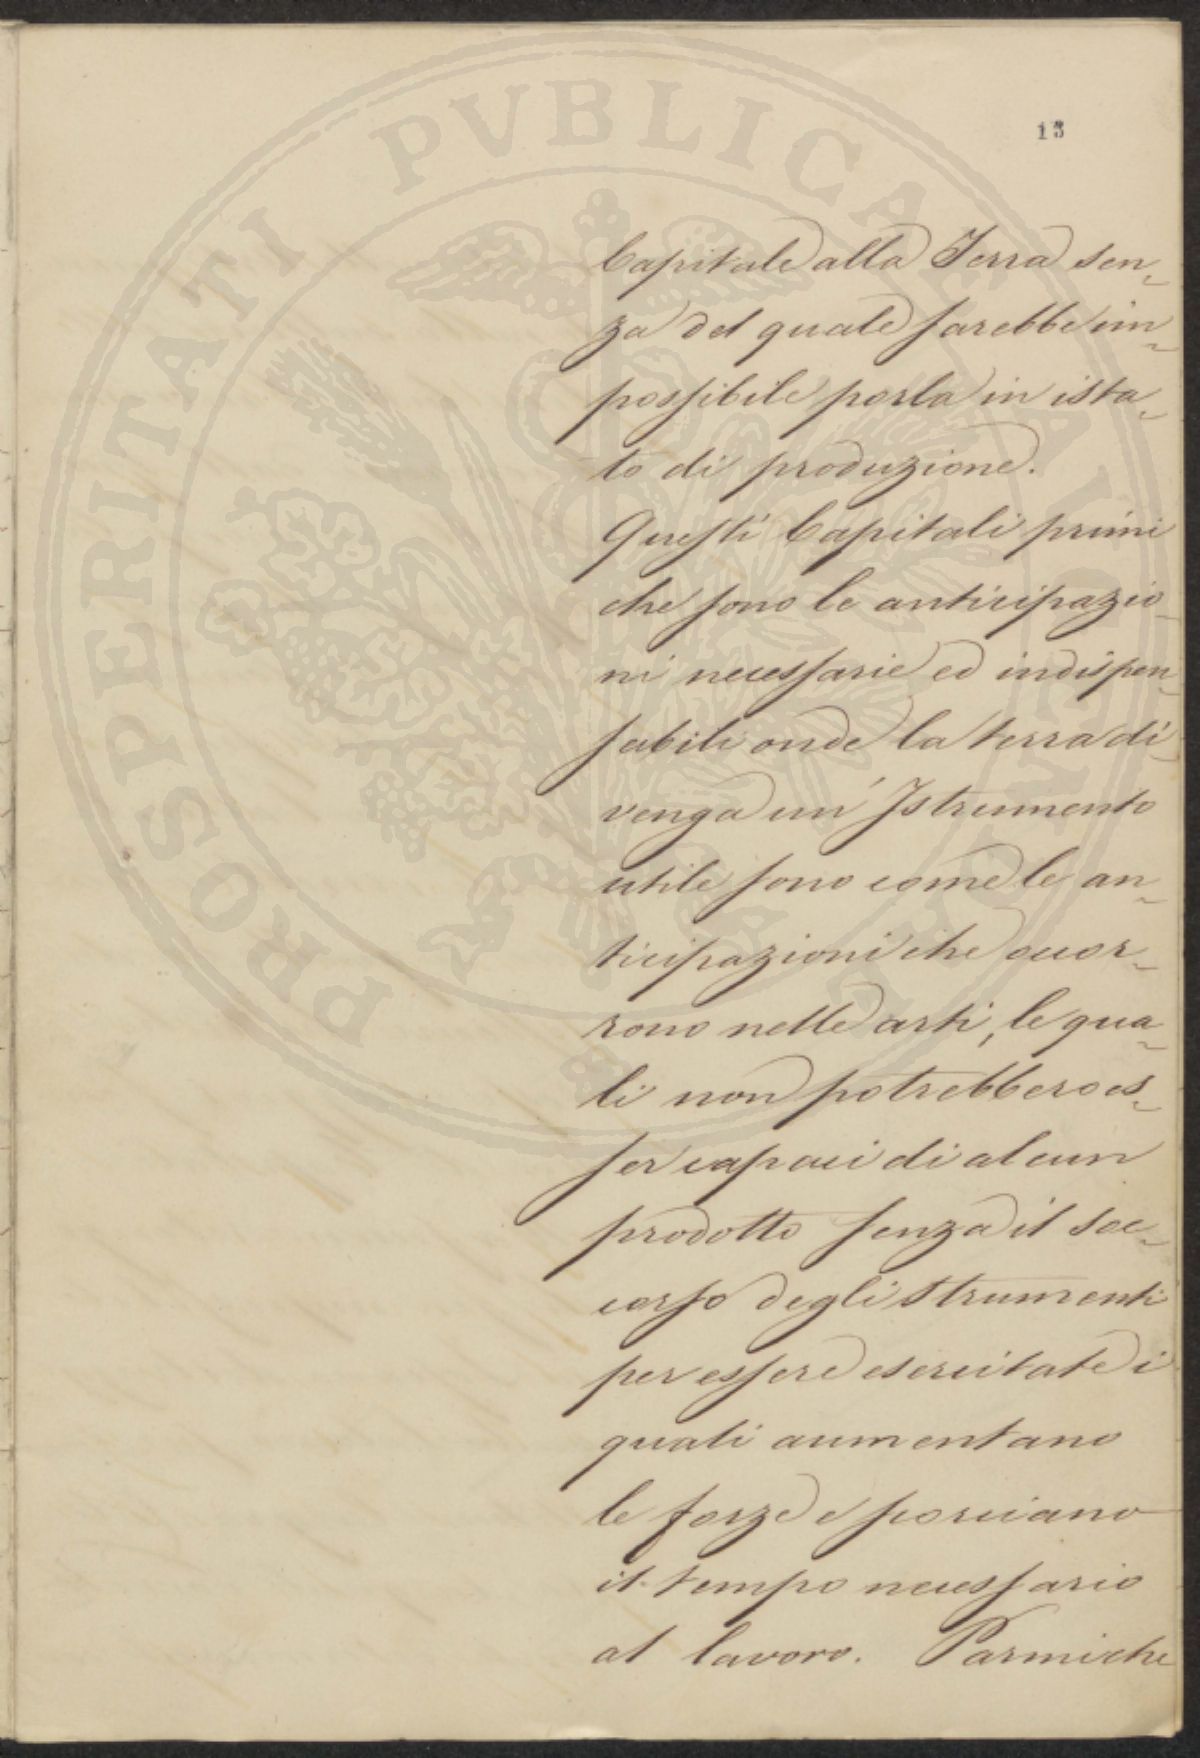 13
Capitale alla Terra sen-
za del quale sarebbe im-
possibile porla in ista-
to di produzione.
Questi Capitali primi
che sono le anticipazio-
ni necessarie ed indispen-
sabili onde la terra di-
venga un' Istrumento
utile sono come le an-
ticipazioni che occor-
rono nelle arti, le qua-
li non potrebbero es-
ser capaci di alcun
prodotto senza il soc-
corso degli strumenti
per essere esercitate i
quali aumentano
le forze e
il tempo necessario
al lavoro. Parmi che
PROSPERITATI PVBLICAE AVGENDAE